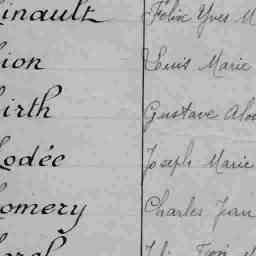 inault Félix Yves M
ion Louis Marie
irth Gustave Aloi
odée Joseph Marie
omery Charles Jean